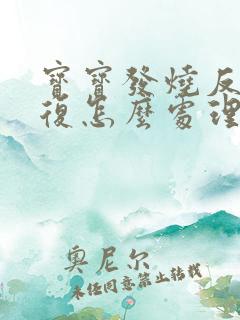 寶寶發燒反
復怎麼處理
奧尼尔
未经同意禁止转载